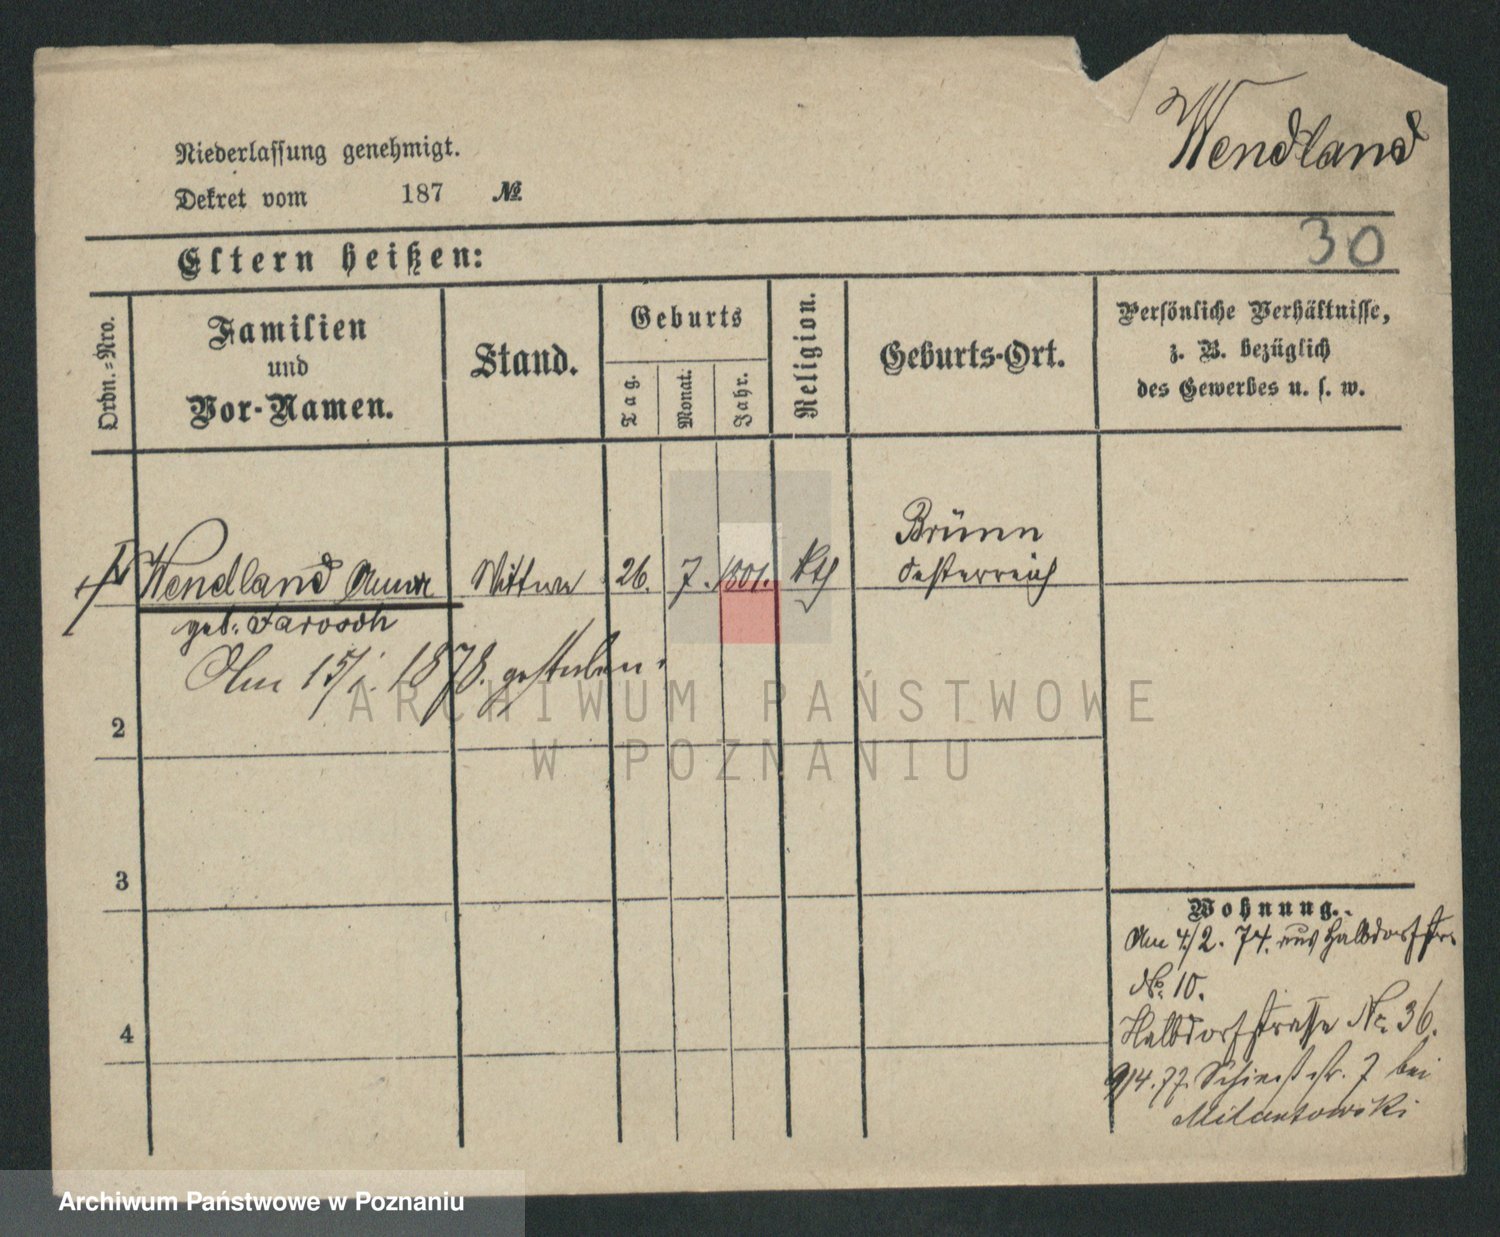 Wendland
Niederlassung genehmigt.
Dekret vom 187 №
30
Eltern heißen:
Ordn.=Nro.
Familien
und
Vor-Namen.
Stand.
Geburts
Tag.
Monat.
Jahr.
Religion.
Geburts-Ort.
Persönliche Verhältnisse,
z. B. bezüglich
des Gewerbes u. s. w.
Brünn
1 Wendland Anna Wittwe 26. 7. 1801. kth Oesterreich
geb. Jarosch
Am 15/1. 1878. gestorben.
ARCHIWUM PAŃSTWOWE
W POZNANIU
2
3
4
Wohnung.
Am 4/2. 74. aus Halbdorfstr.
No. 10.
Halbdorfstraße No. 36.
9/4. 77. Schießstr. 7 bei
Archiwum Państwowe w Poznaniu